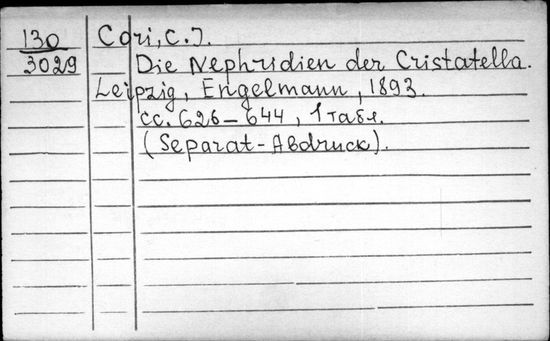 130 Cori, C.J.
3029 Die Nephridien der Cristatella.
Leipzig, Engelmann, 1893.
сс. 626-644, 1 табл.
(Separat-Abdruck).